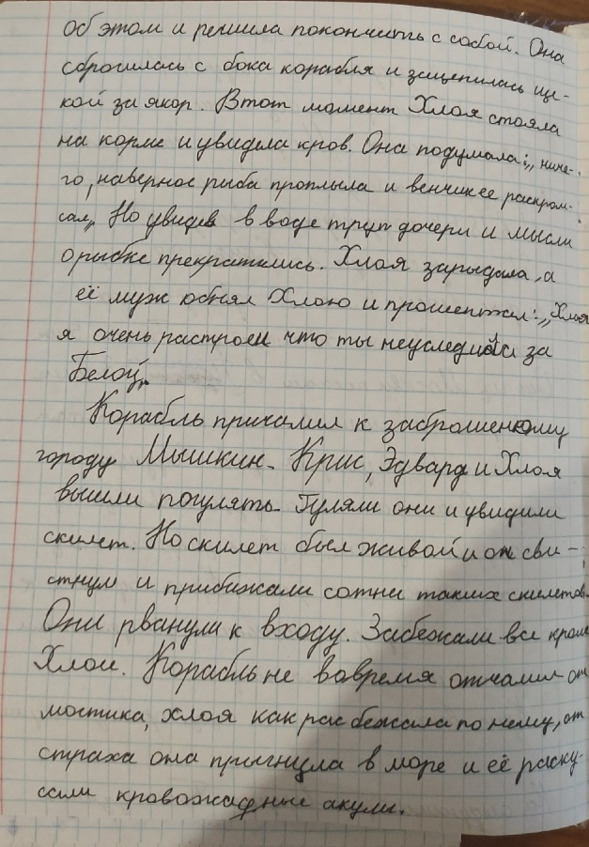 об этом и решила покончить с собой. Она
сбросилась с бока корабля и зацепилась ще-
кой за якор. Втот момент Хлоя стояла
на корме и увидела кров. Она подумала:„ ниче-
го, наверное рыба проплыла и венчик ее раскром-
сал„ Но увидев в воде труп дочери и мысли
о рыбке прекратились. Хлоя зарыдала, а
её муж обнял Хлою и прошептал:„Хлоя
я очень растроен что ты неуследила за
Белой„
Корабль причалил к заброшенному
городу Мышкин. Крис, Эдвард и Хлоя
вышли погулять. Гуляли они и увидили
скилет. Но скилет был живой и он сви-
стнул и прибижали сотни таких скилетов.
Они рванули к входу. Забежали все кроме
Хлои. Корабль не вовремя отчалил от
мостика, хлоя как рас бежала по нему, от
страха она прыгнула в море и её раску-
сали кровожадные акулы.